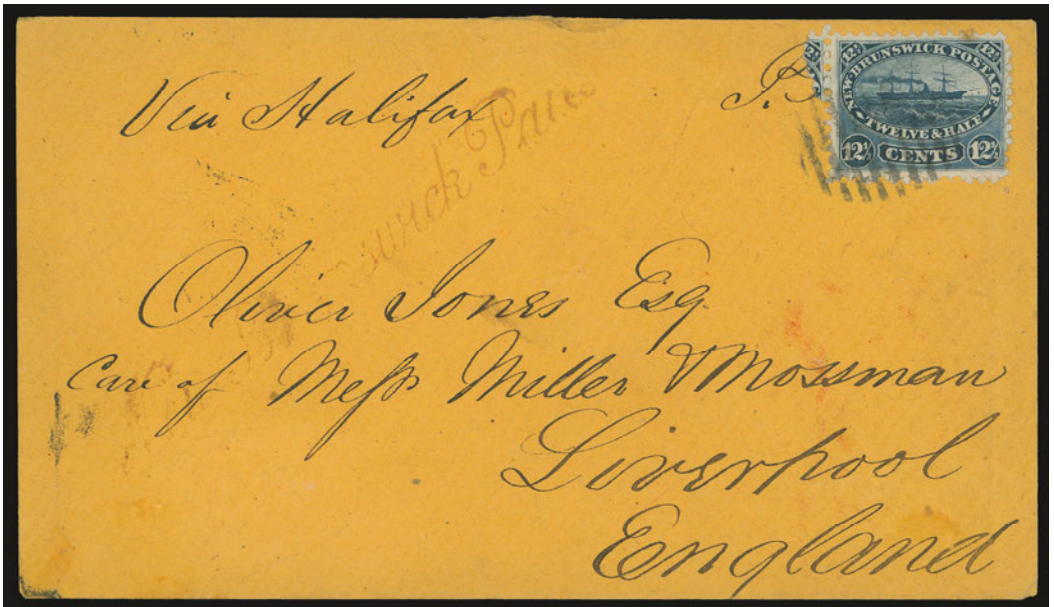 Via Halifax
NEW-BRUNSWICK POSTAGE
TWELVE & HALF
12½ CENTS 12½
Oliver Jones Esq
Care of Mess Miller & Mossman
Liverpool
England